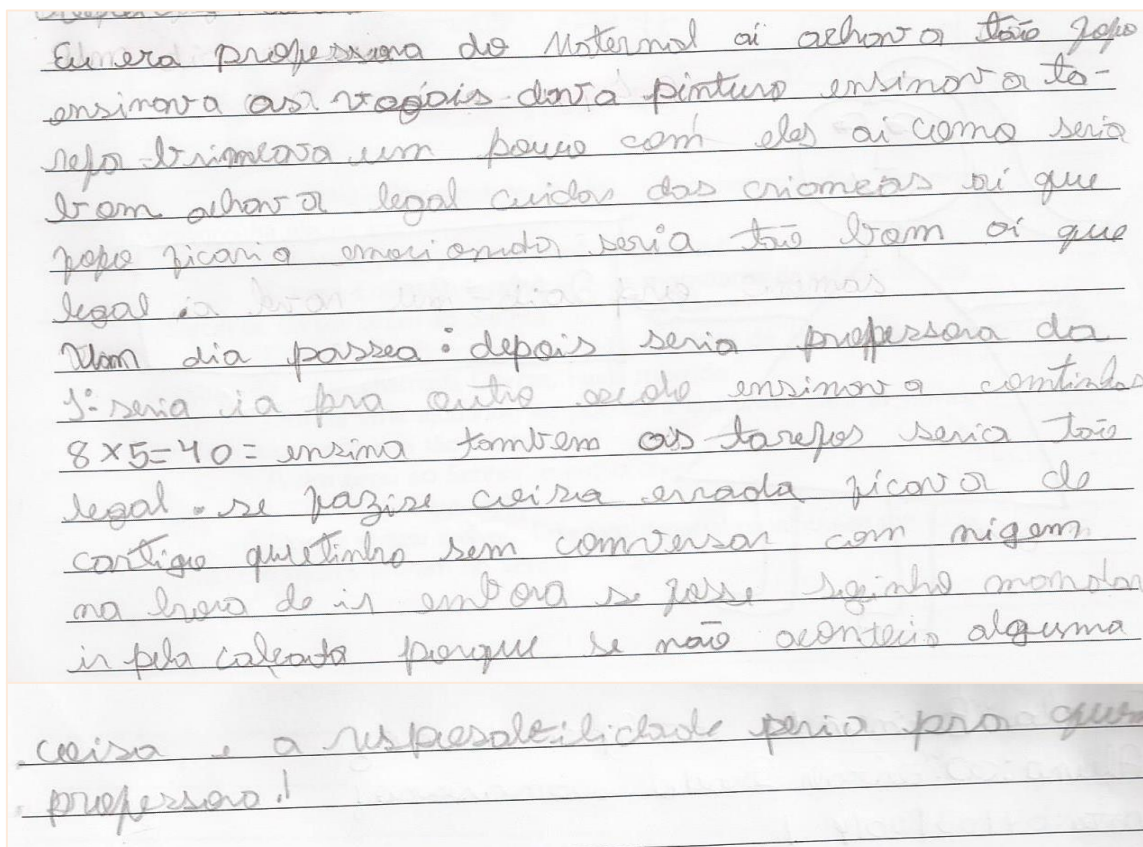 Eu era professora do Maternal ai achava tão fofo
ensinava as vogais dava pintura ensinava ta-
refa brincava um pouco com eles ai como seria
bom achava legal cuidar das crianças ai que
fofo ficaria emocionada seria tão bom ai que
legal
Um dia passea : depois seria professora da
1ª seria ia pra outro ensinava continhas
8x5=40= ensina tambem as tarefas seria tão
legal . se fazise coisa errada ficava de
castigo quietinho sem conversar com nigem
na hora de ir embora se fosse soginho mandar
ir pela calsada porque se não acontecia alguma
coisa e a respresabilidade seria pra
professora!